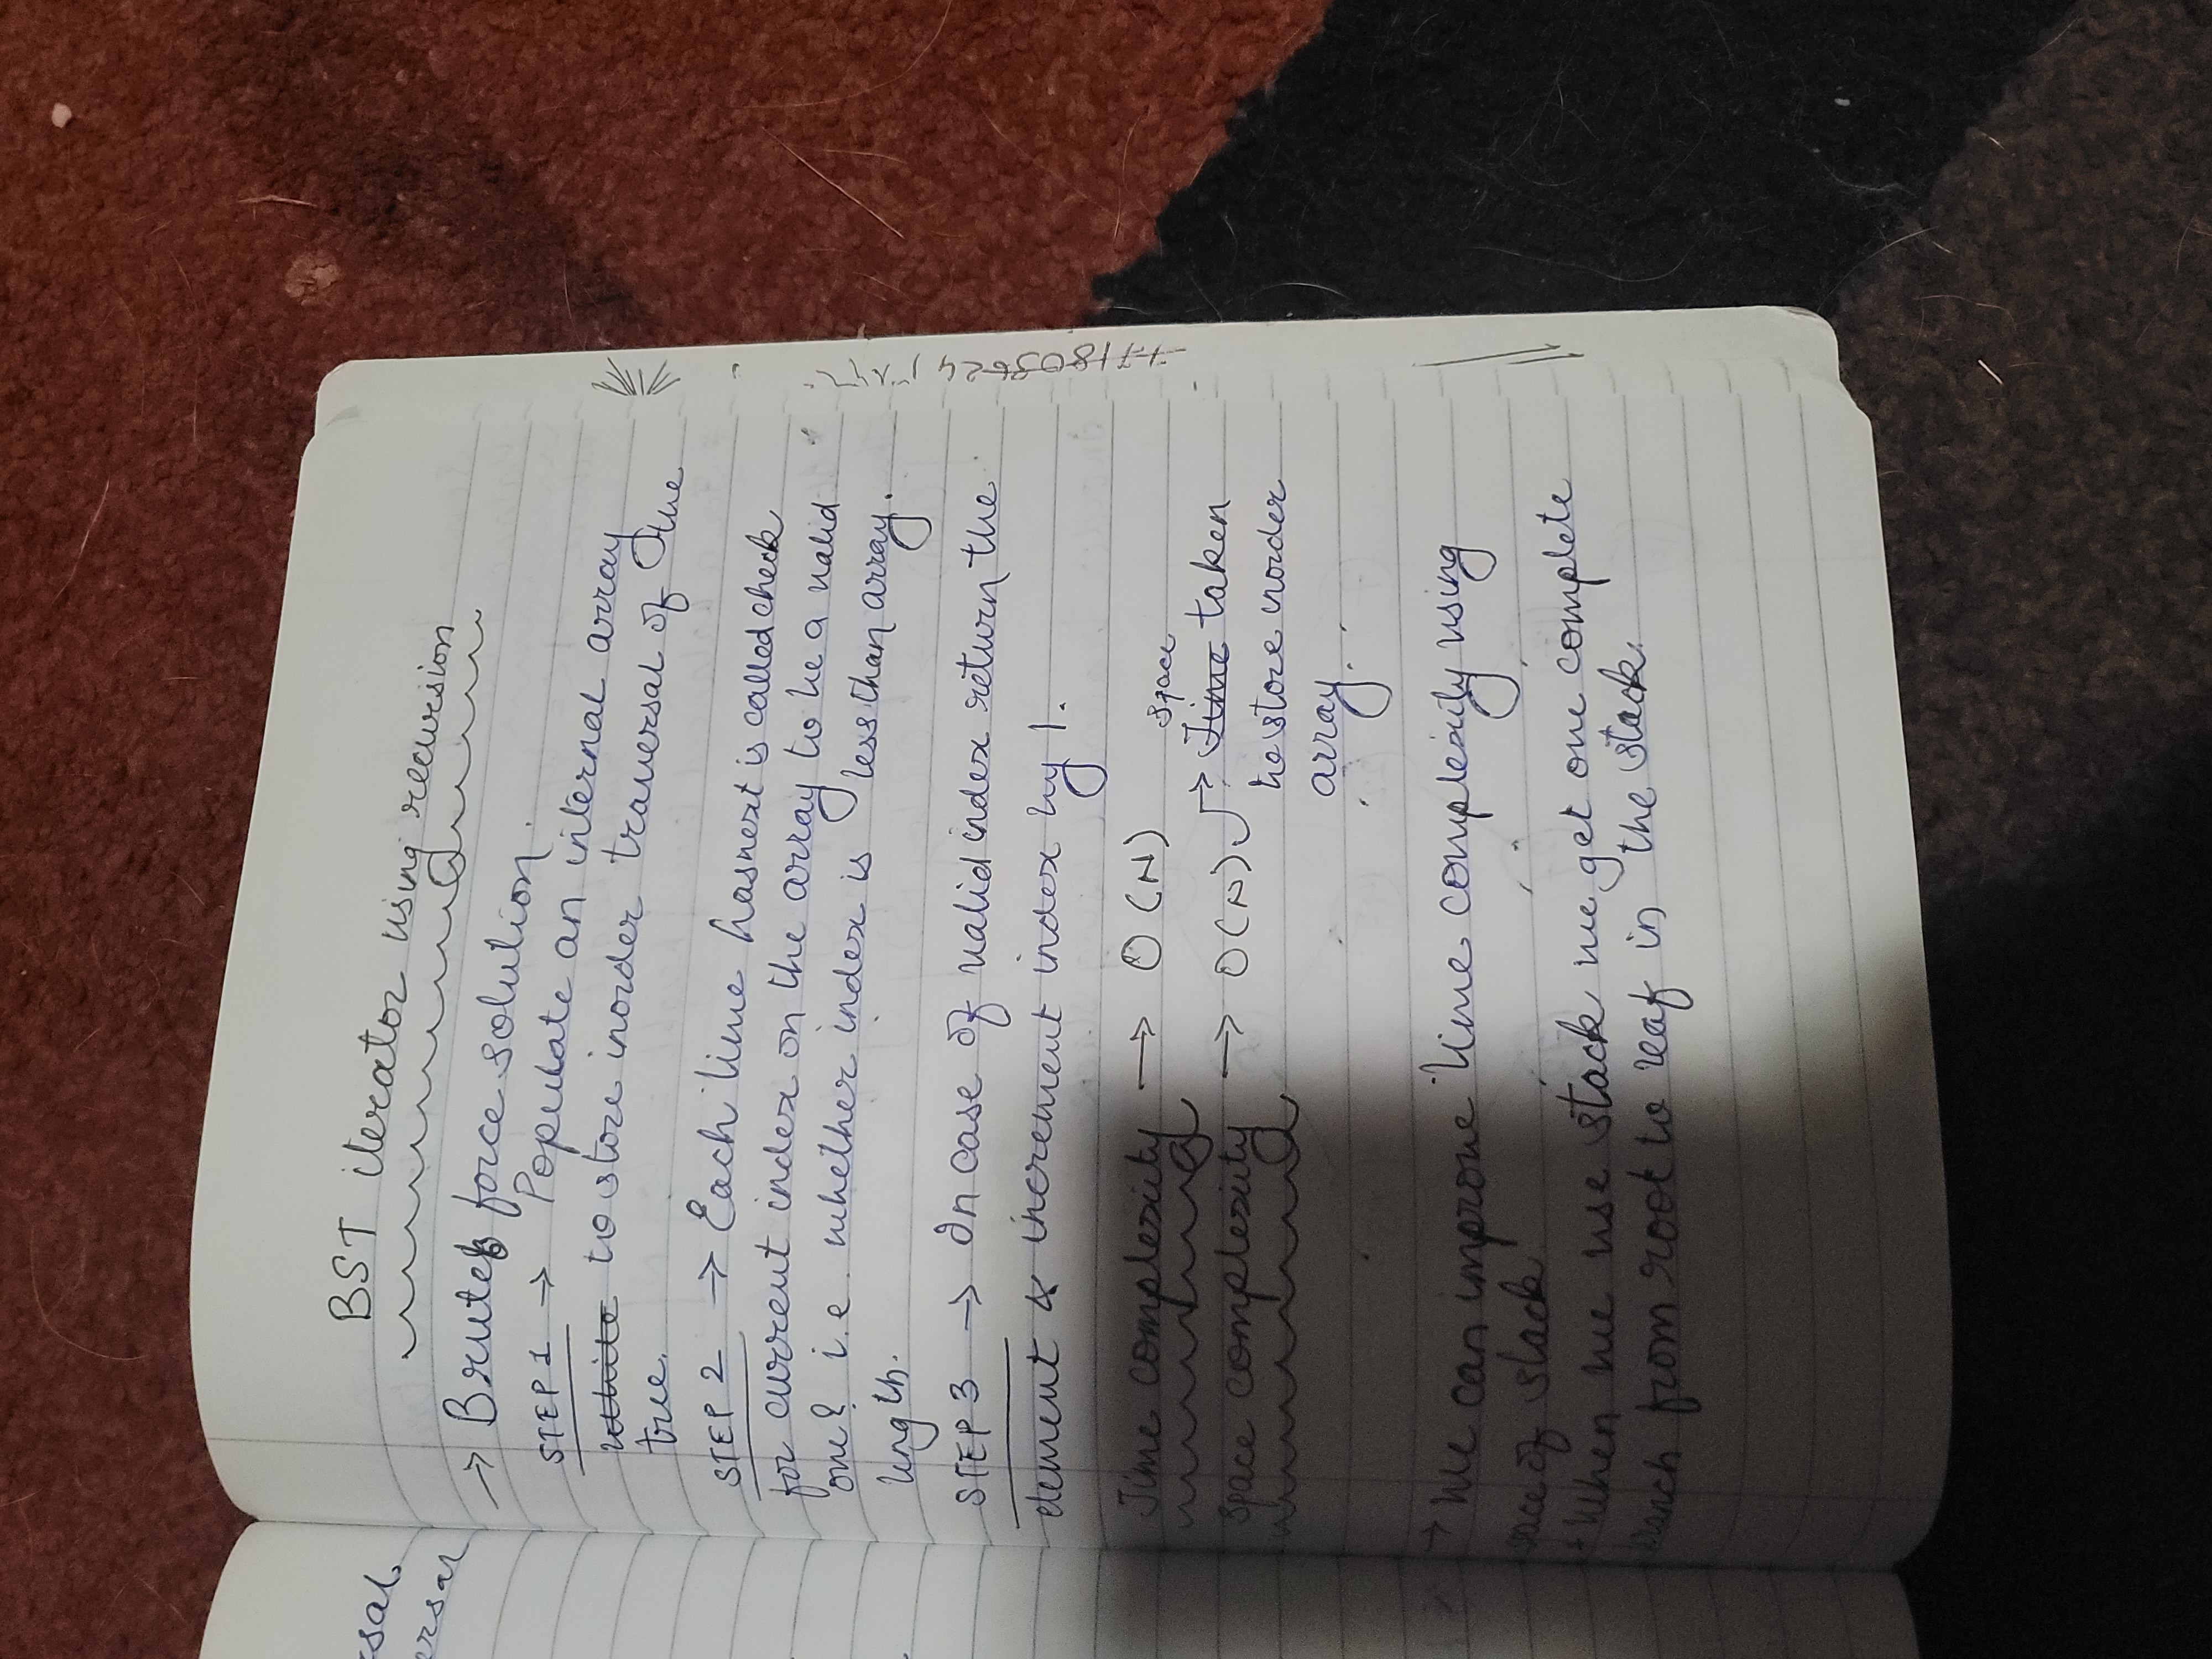 sal.
ersal
BST iterator using recursion
→ Brute force solution.
STEP 1 → Populate an internal array
to store inorder traversal of the
tree.
STEP 2 → Each time hasnext is called check
for current index on the array to be a valid
one? i.e. whether index is less than array.
length.
STEP 3 → In case of valid index return the
element & increment index by 1.
Time complexity → O(N)
Space complexity → O(N) → space
Time taken
to store inorder
array.
→ We can improve time complexity using
space of stack
When we use stack we get one complete
branch from root to leaf in the stack.